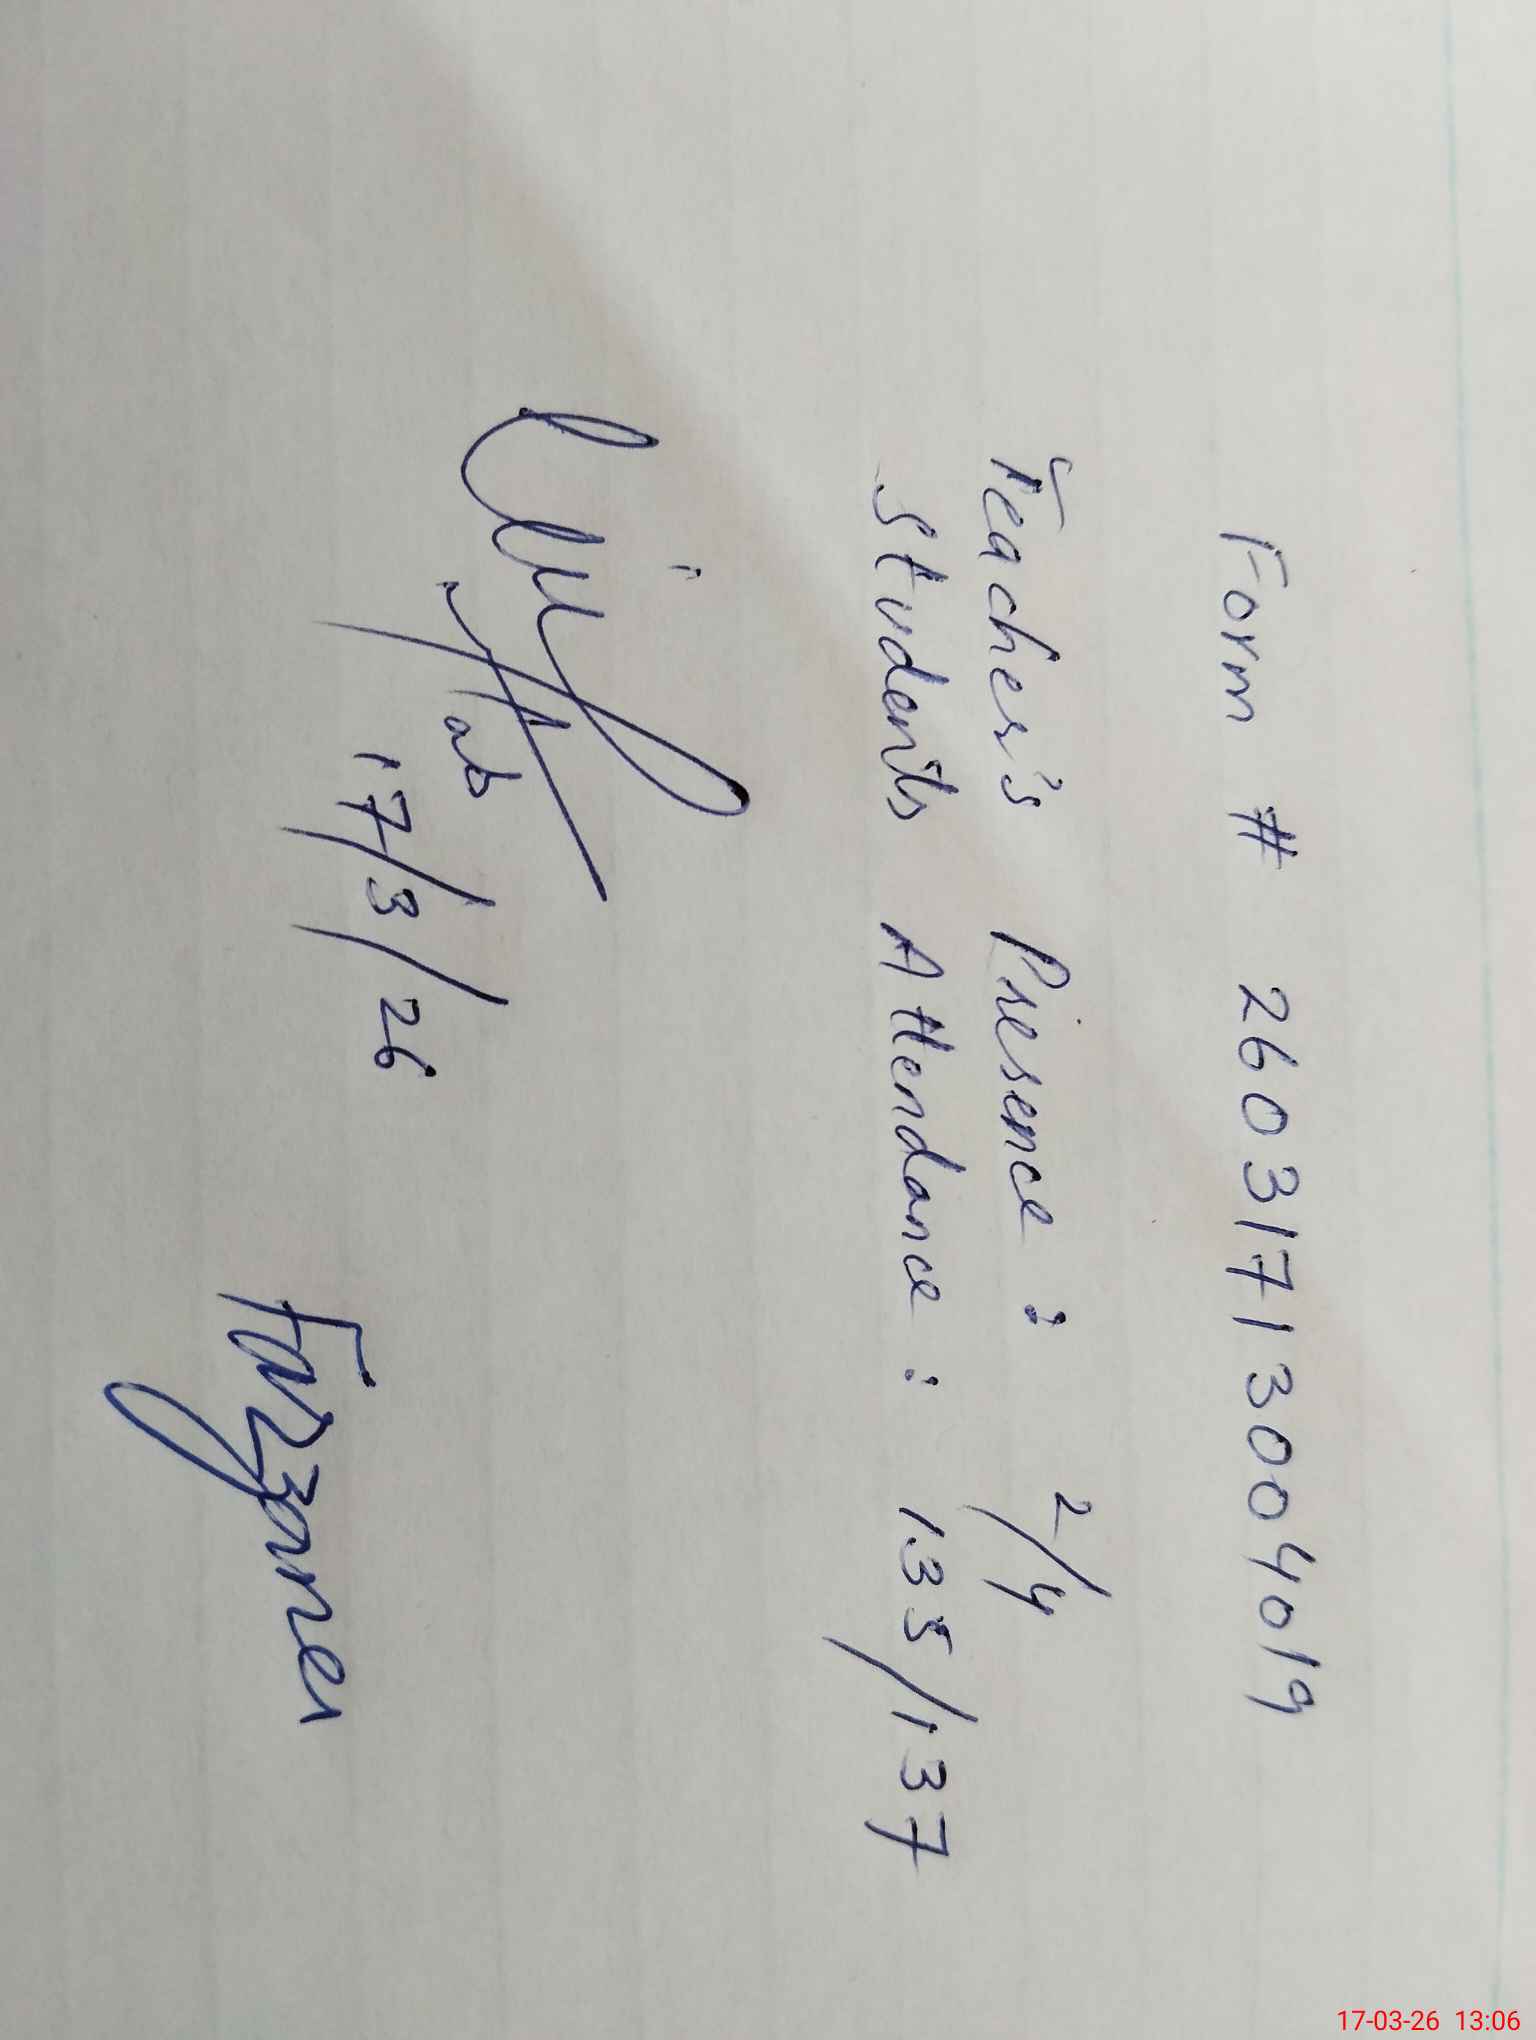 Form # 26031713004019
Teacher's Presence : 2/4
Students Attendance : 135/137
17/3/26
Farzaner
17-03-26 13:06